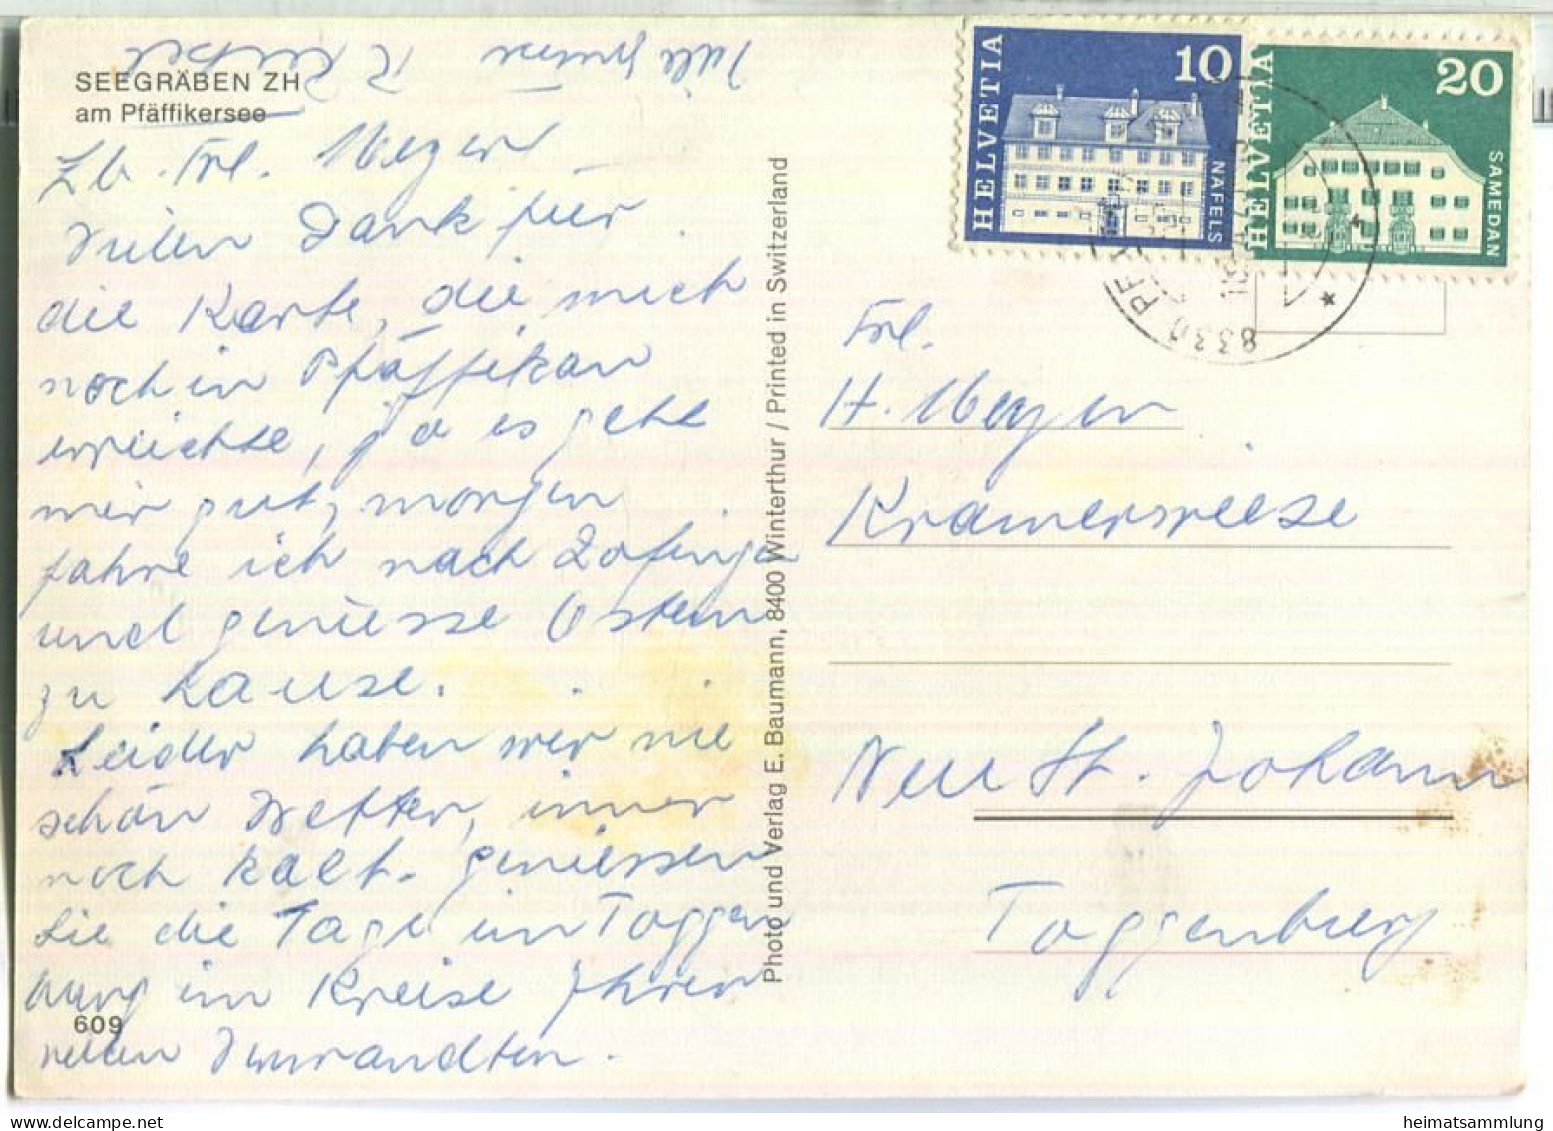 SEEGRÄBEN ZH
am Pfäffikersee
Lb. Frl. Meyer
Vielen Dank für
die Karte, die mich
noch in Pfäffikon
erreichte, ja es geht
mir gut, morgen
fahre ich nach Zofingen
und geniesse Ostern
zu Hause.
Leider haben wir nie
schön Wetter, immer
noch kalt. geniessen
Sie die Tage im Toggen
burg im Kreise Ihrer
lieben Verwandten.
Viele Grüsse R.
609
Photo und Verlag E. Baumann, 8400 Winterthur / Printed in Switzerland
HELVETIA 10 NÄFELS
HELVETIA 20 SAMEDAN
8330
Frl.
H. Meyer
Neu St. Johann
Toggenburg
heimatsammlung